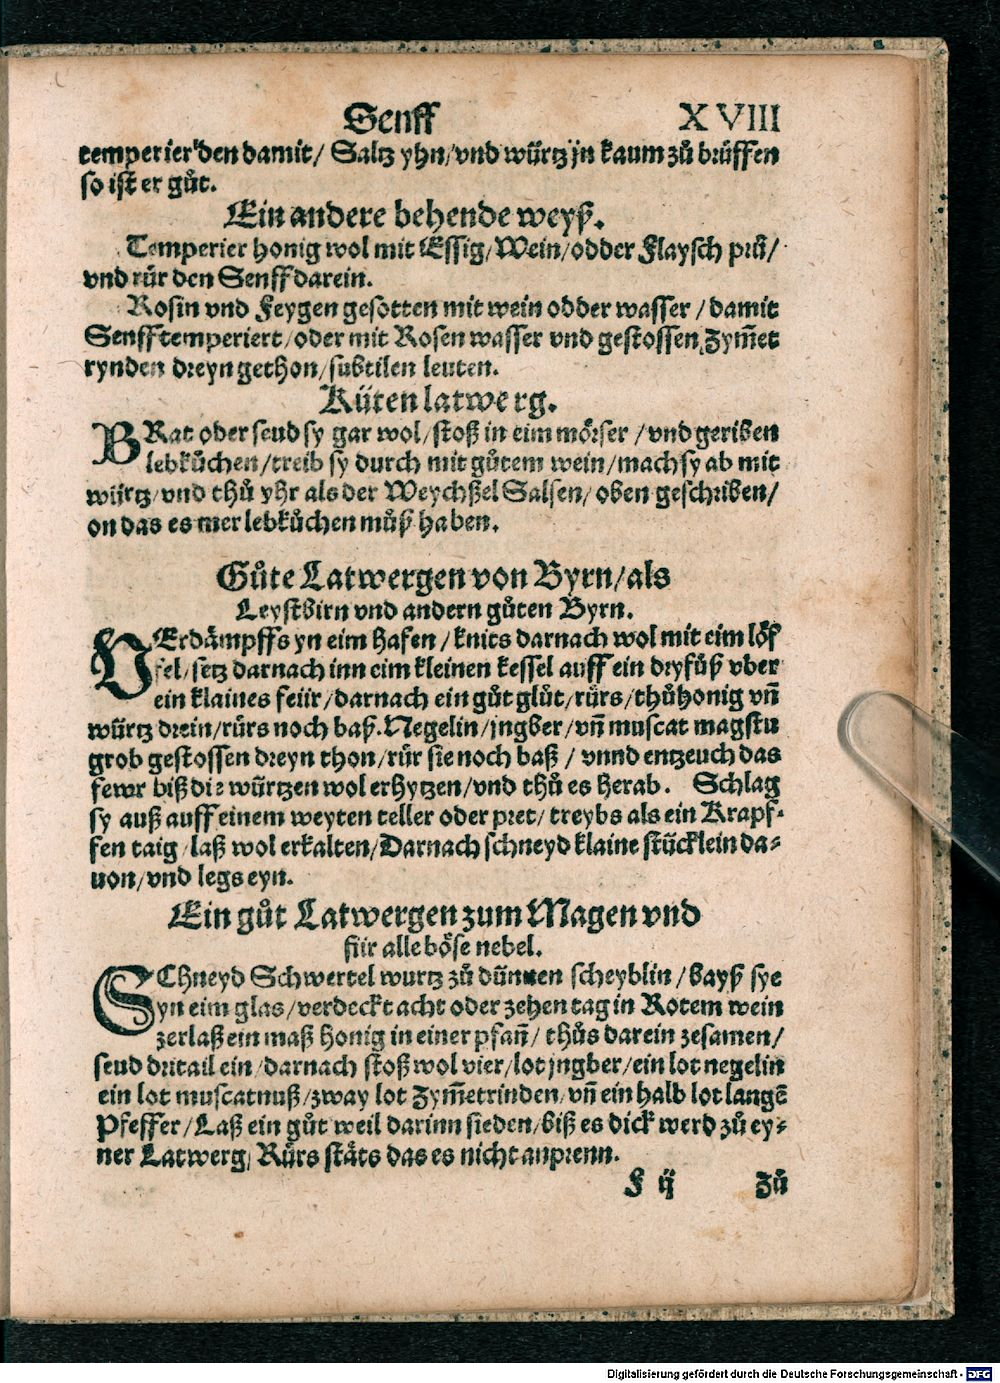 Senff XVIII
temperier den damit/ Saltz yhn/vnd würtz jn kaum zů brüffen
so ist er gůt.
Ein andere behende weyß.
Temperier honig wol mit Essig/Wein/odder Flaysch prů/
vnd rür den Senff darein.
Rosin vnd Feygen gesotten mit wein odder wasser / damit
Senff temperiert/oder mit Rosen wasser vnd gestossen Zym̄et
rynden dreyn gethon/subtilen leuten.
Küten latwerg.
BRat ober seud sy gar wol/stoß in eim mörser /vnd geriben
lebkůchen/treib sy durch mit gůtem wein/mach sy ab mit
würtz/vnd thů yhr als der Weychßel Salsen/oben geschriben/
on das es mer lebkůchen můß haben.
Gůte Latwergen von Byrn/als
Leystbirn vnd andern gůten Byrn.
VErdämpffs yn eim hafen / knits darnach wol mit eim löf
fel/setz darnach inn eim kleinen kessel auff ein dryfůß vber
ein klaines feür/darnach ein gůt glůt/rürs/thů honig vn̄
würtz drein/rürs noch baß. Negelin/jngber/vn̄ muscat magstu
grob gestossen dreyn thon/rür sie noch baß / vnnd entzeuch das
fewr biß die würtzen wol erhytzen/vnd thů es herab. Schlag
sy auß auff einem weyten teller oder pret/treybs als ein Krapf-
fen taig/laß wol erkalten/Darnach schneyd klaine stücklein da-
uon/vnd legs eyn.
Ein gůt Latwergen zum Magen vnd
für alle böse nebel.
SChneyd Schwertel wurtz zů dünnen scheyblin/bayß sye
yn eim glas/verdeckt acht oder zehen tag in Rotem wein
zerlaß ein maß honig in einer pfan̄/ thůs darein zesamen/
seud dritail ein/darnach stoß wol vier/lot jngber/ein lot negelin
ein lot muscatnuß/zway lot Zym̄etrinden/vn̄ ein halb lot langē
Pfeffer/Laß ein gůt weil darinn sieden/biß es dick werd zů ey-
ner Latwerg/ Rürs stäts das es nicht anprenn.
F ij Zů
Digitalisierung gefördert durch die Deutsche Forschungsgemeinschaft - DFG